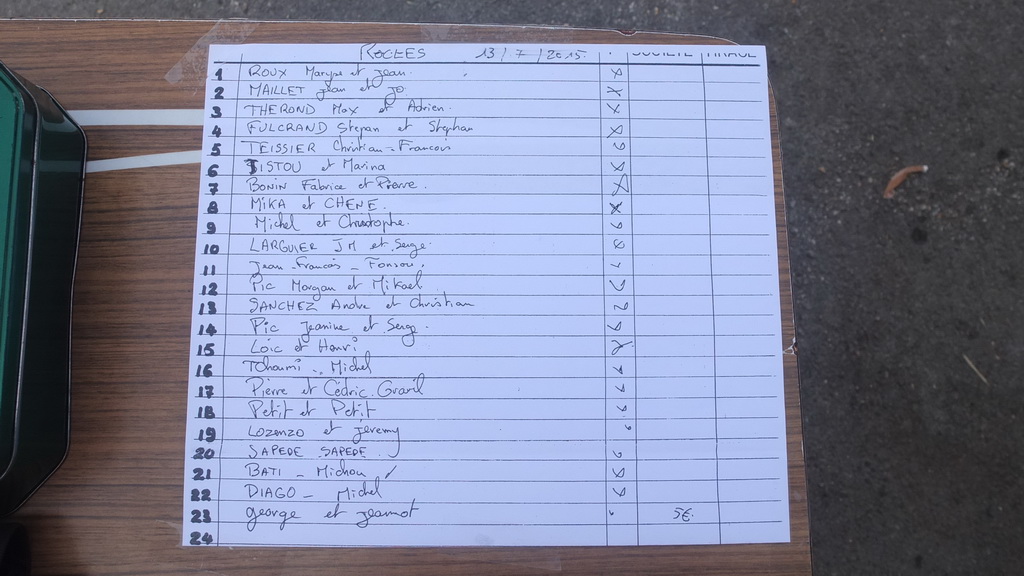 ROCLES 13/7/2015 SOCIETE TIRAGE
1 ROUX Maryse et Jean
2 MAILLET Jean et Jo
3 THEROND Max et Adrien
4 FULCRAND Stepan et Stephan
5 TEISSIER Christian - Francois
6 TISTOU et Marina
7 BONIN Fabrice et Pierre
8 MIKA et CHENE
9 Michel et Christophe
10 LARGUIER JM et Serge
11 Jean-Francois - Fonsou
12 Pic Morgan et Mikael
13 SANCHEZ Andre et Christian
14 Pic Jeanine et Serge
15 Loic et Henri
16 Tohami - Michel
17 Pierre et Cédric
18 Petit et Petit
19 Lozenzo et jeremy
20 SAPEDE SAPEDE
21 BATI - Michou
22 DIAGO - Michel
23 george et jeannot 5€
24